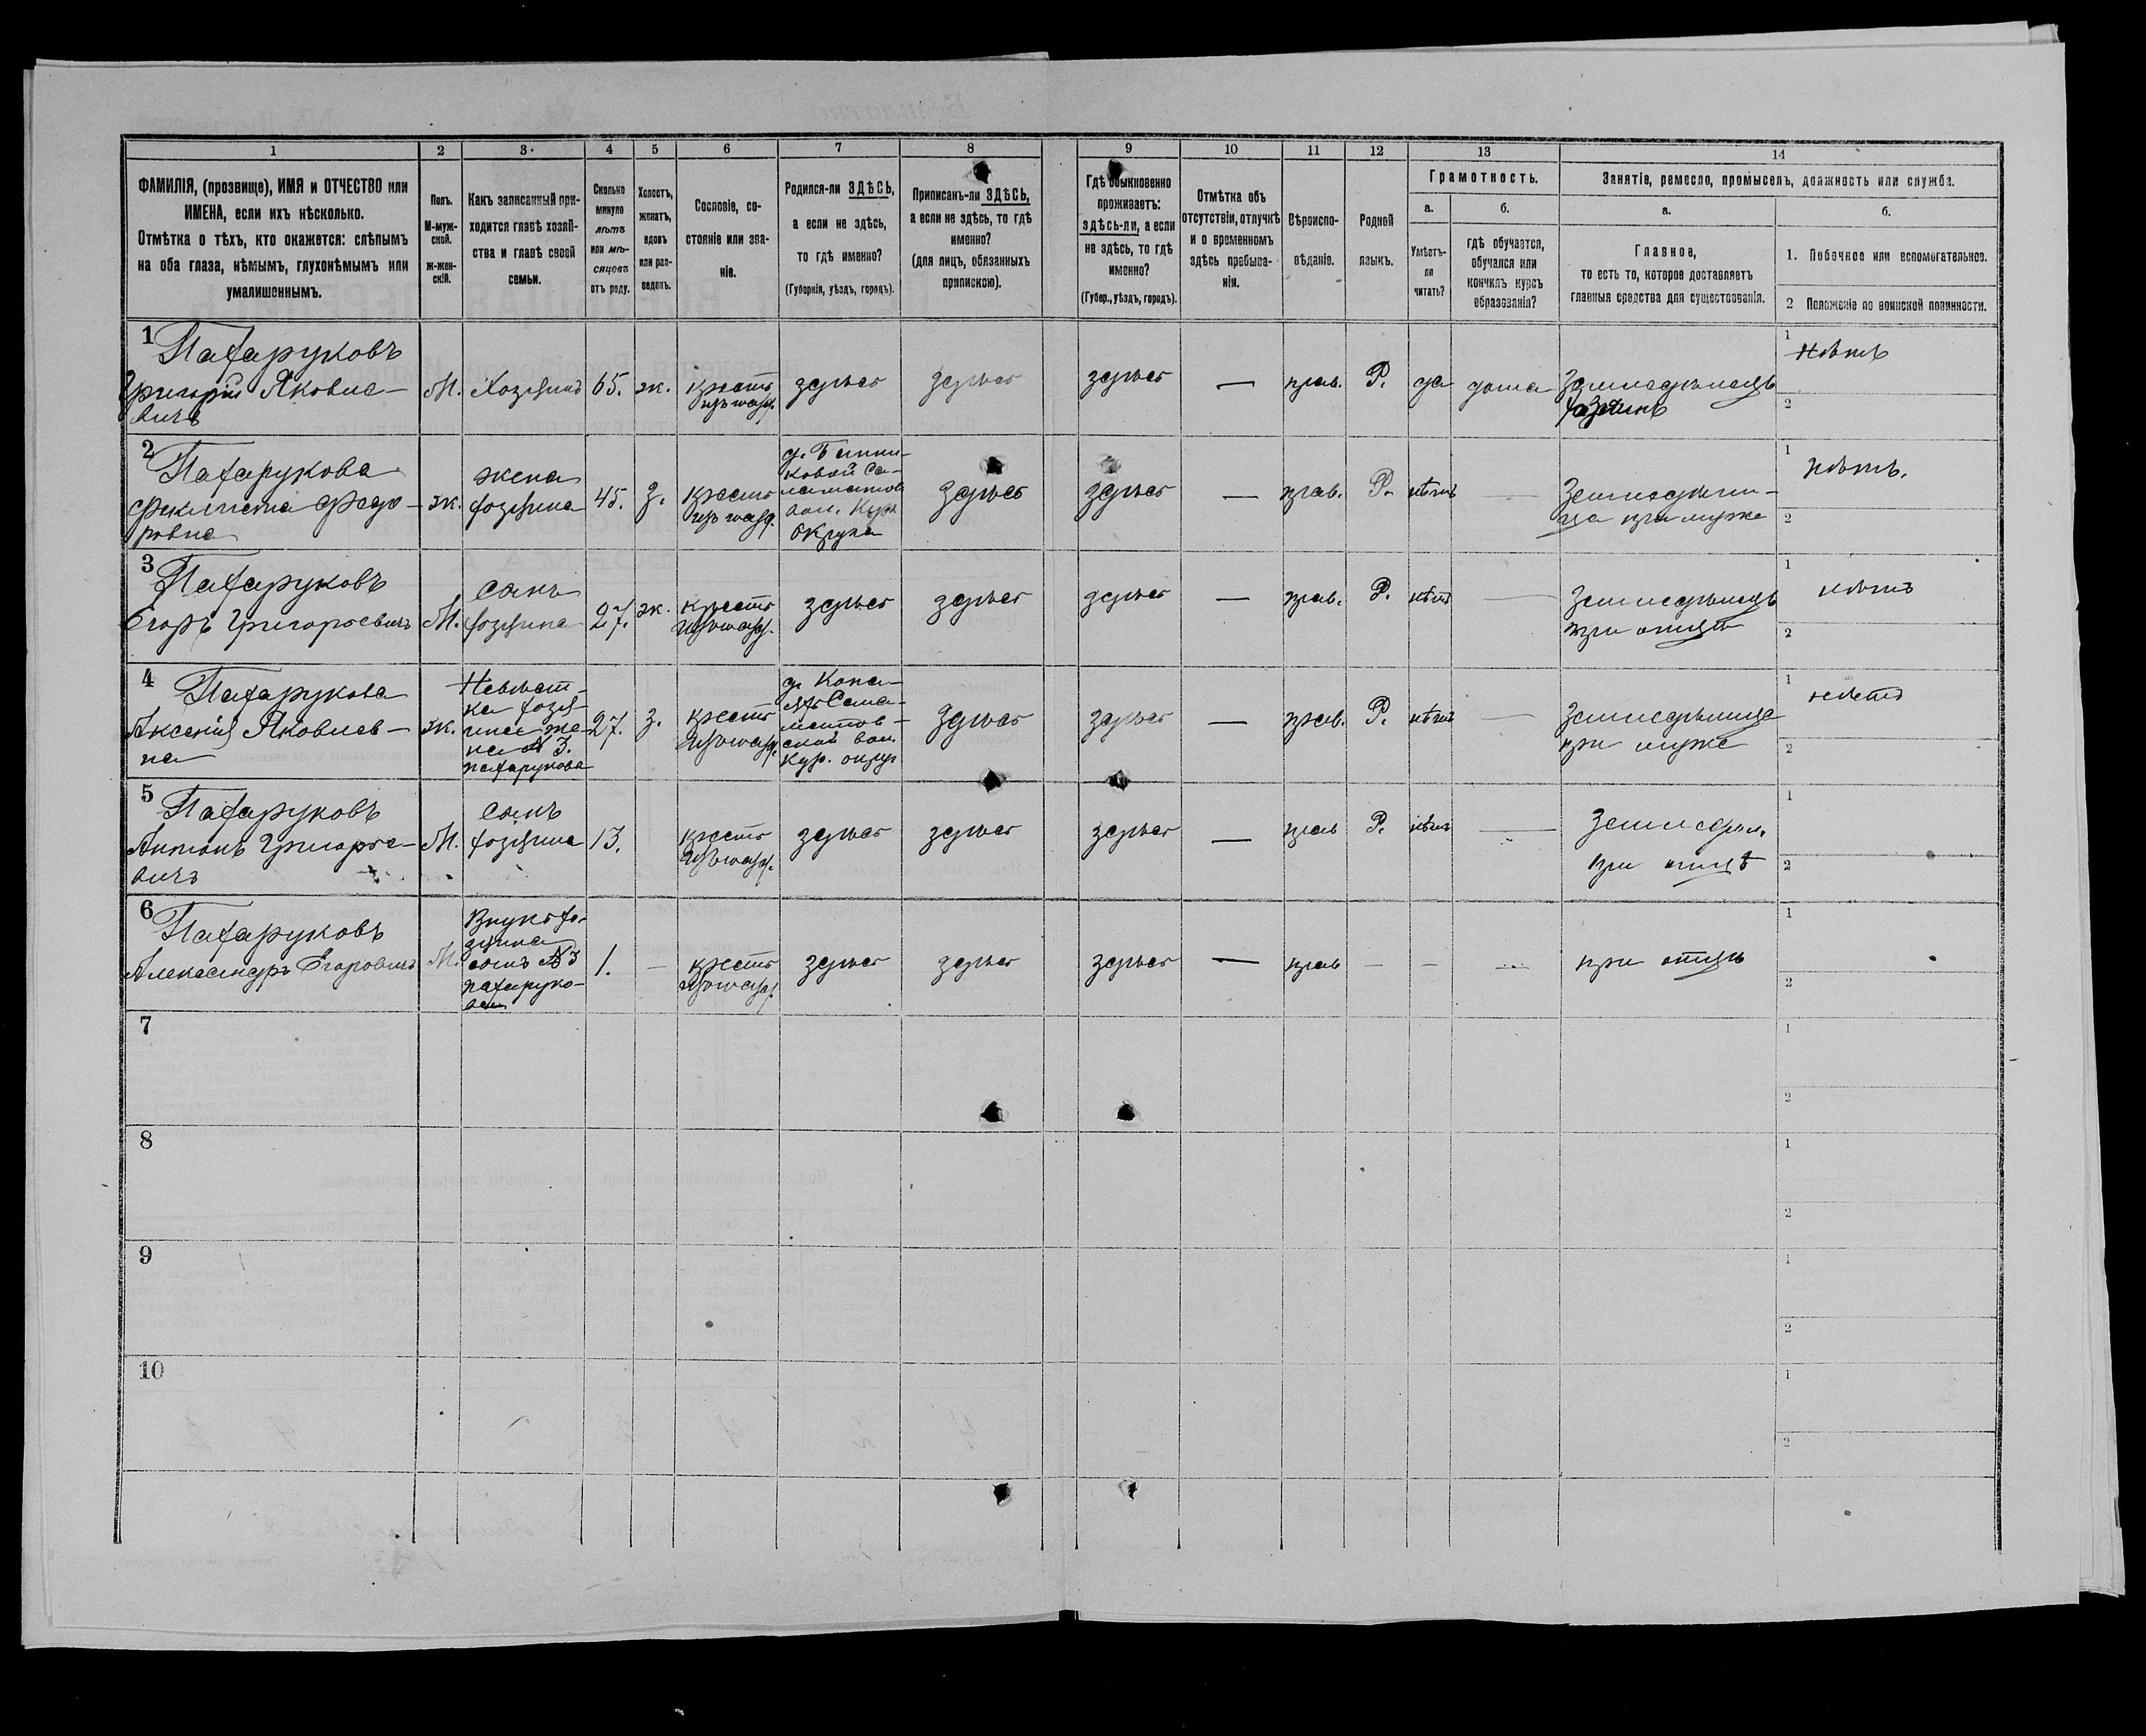 1 2 3. 4 5 6 7 8 9 10 11 12 13 14
ФАМИЛІЯ, (прозвище), ИМЯ и ОТЧЕСТВО или
ИМЕНА, если ихъ нѣсколько.
Отмѣтка о тѣхъ, кто окажется: слѣпымъ
на оба глаза, нѣмымъ, глухонѣмымъ или
умалишеннымъ.
Полъ.
М-муж-
ской.
ж-жен-
скій.
Какъ записанный при-
ходится главѣ хозяй-
ства и главѣ своей
семьи.
Сколько
минуло
лѣтъ
или мѣ-
сяцевъ
отъ роду.
Холостъ,
женатъ,
вдовъ
или раз-
веденъ.
Сословіе, со-
стояніе или зва-
ніе.
Родился-ли ЗДѢСЬ,
а если не здѣсь,
то гдѣ именно?
(Губернія, уѣздъ, городъ).
Приписанъ-ли ЗДѢСЬ,
а если не здѣсь, то гдѣ
именно?
(для лицъ, обязанныхъ
припискою).
Гдѣ обыкновенно
проживаетъ:
здѣсь-ли, а если
не здѣсь, то гдѣ
именно?
(Губер., уѣздъ, городъ).
Отмѣтка объ
отсутствіи, отлучкѣ
и о временномъ
здѣсь пребыва-
ніи.
Вѣроиспо-
вѣданіе.
Родной
языкъ.
Грамотность.
а.
Умѣетъ-
ли
читать?
б.
гдѣ обучается,
обучался или
кончилъ курсъ
образованія?
Занятіе, ремесло, промыселъ, должность или служба.
а.
Главное,
то есть то, которое доставляетъ
главныя средства для существованія.
б.
1. Побочное или вспомогательное.
2 Положеніе по воинской повинности.
1
Пахаруковъ
Григорій Яковле-
вичъ
М.
Хозяинъ
65.
ж.
крест
изъ
здѣсь
здѣсь
здѣсь
—
прав.
Р.
да
дома
Земледѣлецъ
хозяинъ
1
Нѣтъ
2
2
Пахарукова
Федо-
ровна
ж.
жена
хозяина
45.
з.
крест
изъ
ковой Са-
ламатов
вол. Кур
округа
здѣсь
здѣсь
—
прав.
Р.
нѣтъ
—
Земледѣли-
ца при мужѣ
1
нѣтъ.
2
3
Пахаруковъ
Егоръ Григорьевичъ
М.
сынъ
хозяина
27.
ж.
крест
здѣсь
здѣсь
здѣсь
—
прав.
Р.
нѣтъ
—
Земледѣлецъ
при отцѣ
1
нѣтъ
2
4
Пахарукова
Аксенія Яковлев-
на
ж.
Невѣст-
ка хозя-
ина же-
на № 3.
пахарукова
27.
з.
крест
д. Копа-
Сала-
матов-
ской вол.
Кур. округ
здѣсь
здѣсь
—
прав.
Р.
нѣтъ
—
Земледѣлица
при мужѣ
1
нѣтъ
2
5
Пахаруковъ
Антонъ Григорье-
вичъ
М.
сынъ
хозяина
13.
крест
здѣсь
здѣсь
здѣсь
—
прав
Р.
нѣтъ
—
Земледѣл.
при отцѣ
1
2
6
Пахаруковъ
Александръ Егоровичъ
М.
Внукъ хо-
зяина
сынъ № 3
пахаруко-
ва
1.
—
крест
здѣсь
здѣсь
здѣсь
—
прав
—
—
—
при отцѣ
1
2
7
1
2
8
1
2
9
1
2
10
1
2